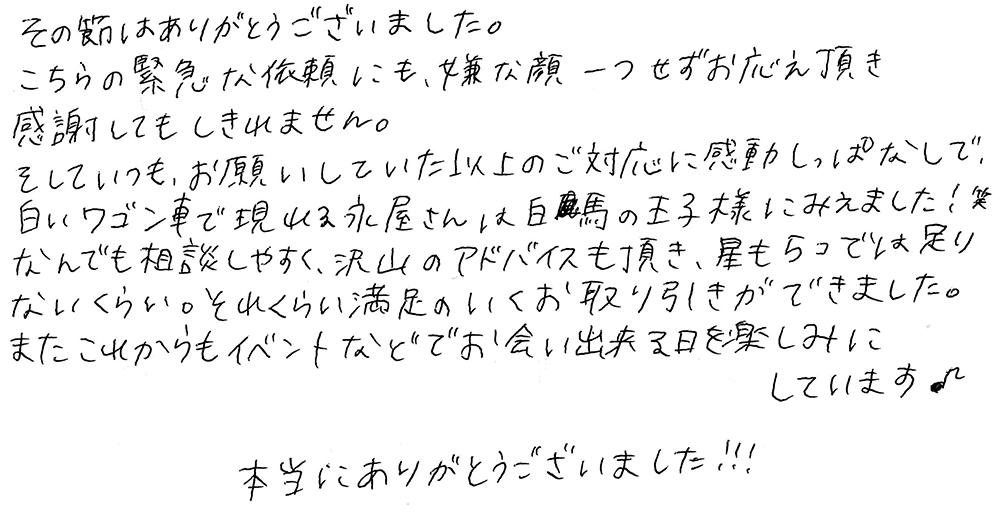 その節はありがとうございました。
こちらの緊急な依頼にも、嫌な顔一つせずお応え頂き
感謝してもしきれません。
そしていつも、お願いしていた以上のご対応に感動しっぱなしで、
白いワゴン車で現れる永屋さんは白馬の王子様にみえました!笑
なんでも相談しやすく、沢山のアドバイスも頂き、星もらコでは足り
ないくらい。それくらい満足のいくお取り引きができました。
またこれからもイベントなどでお会い出来る日を楽しみに
しています♪
本当にありがとうございました!!!